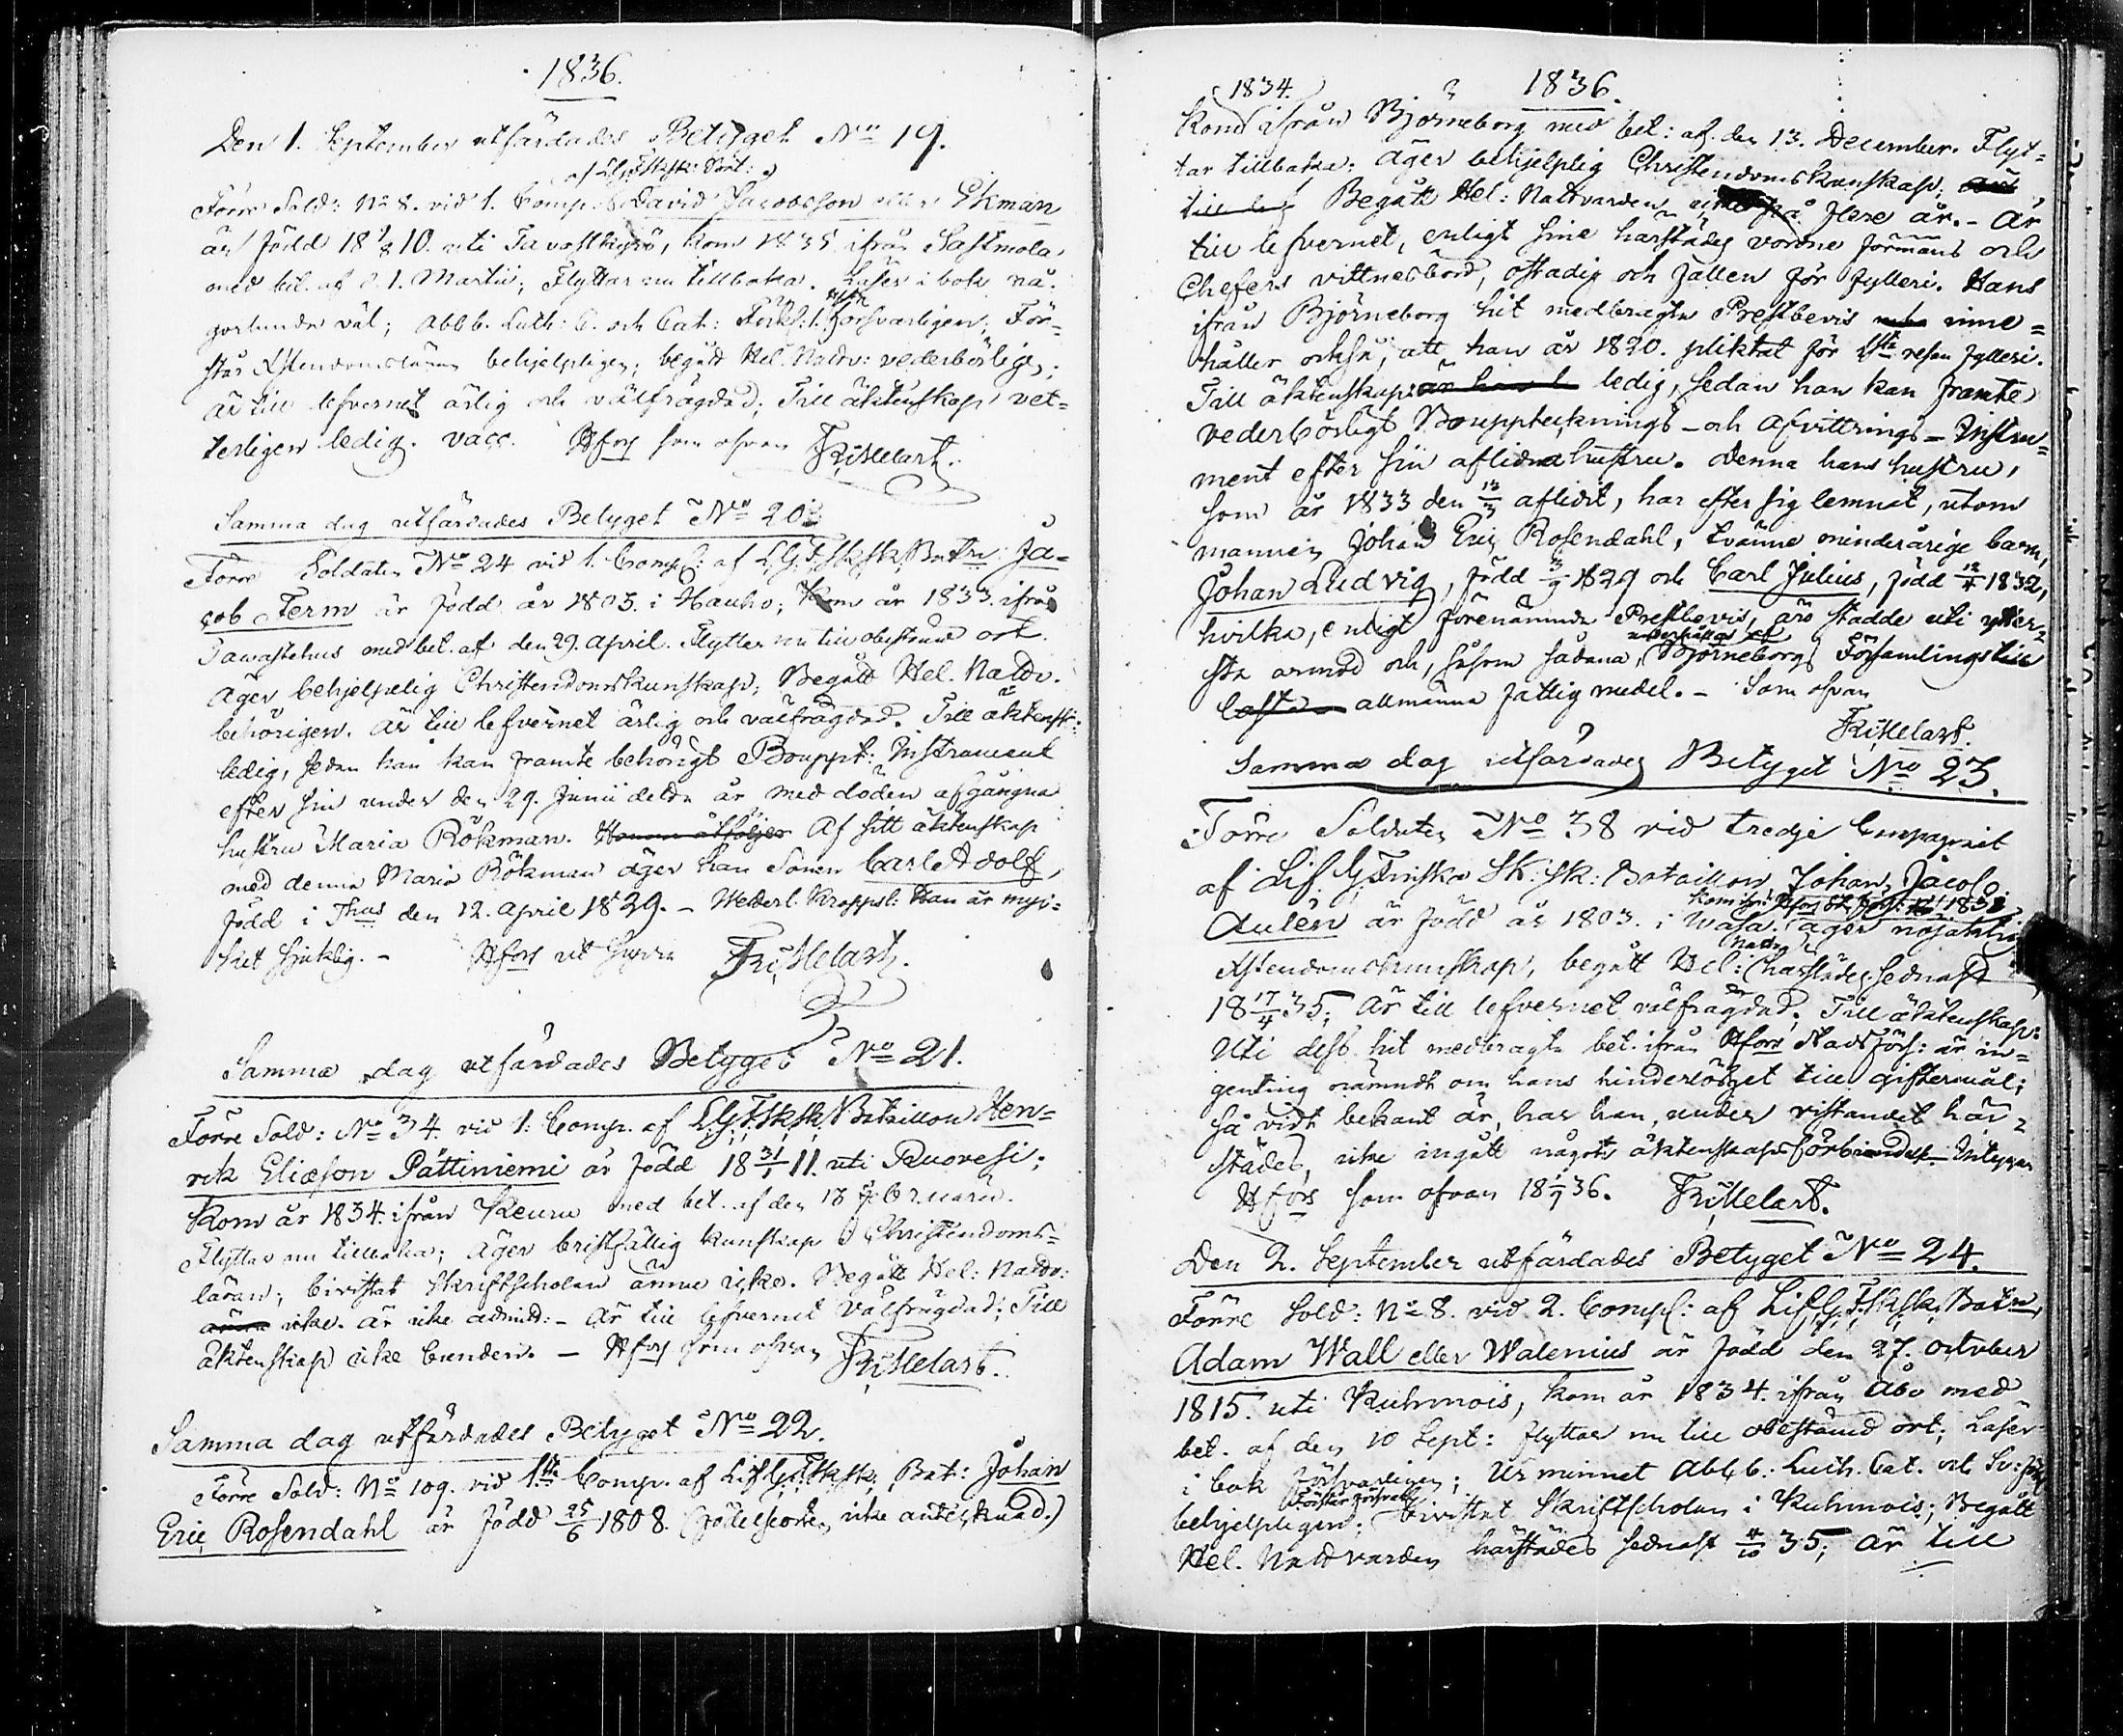 1836.
Den 1. September utfärdades Betyget No 19.
af LG. F. Sk. Sk. Bat:
Förre Sold: No 8. vid 1. Comp. David Jacobsson eller Ekman
är född 18 10. uti Tavastkyrö, kom 1835 ifrån Sastmola
med bet. af d. 1. Martii; Flyttar nu tillbaka. Läser i bok nå-
gorlunda väl; Abb. Luth: C. och Cat: försvarligen; För-
står Xstendomsläran behjelpligen; begått Hel. Nattv: vederbörlig:;
är till lefvernet ärlig och välfrägdad; Till äktenskap vet-
terligen ledig. vacc. Hfors som ofvan FriMelart.
Samma dag utfärdades Betyget No 20
Förre Soldaten No 24 vid 1. Comp: af L.G. F. Sk. Sk. Batn: Ja-
cob Ferm är född år 1803. i Hauho; Kom år 1833. ifrån
Tawastehus med bet. af den 29. April. Flyttar nu till obestämd ort.
Äger behjelpelig Christendomskunskap; Begått Hel. Nattv.
behörigen. Är till lefvernet ärlig och välfrägdad. Till äktensk:
ledig, sedan han kan framte behörigt Bouppt: Instrument
efter sin under den 29. Junii detta år med döden afgångna
hustru Maria Rökman. Honom åtföljer Af sitt äktenskap
med denna Maria Rökman äger han Sonen Carl Adolf,
född i Thus den 12. April 1829. – Wederl. Kroppsl: Han är myc-
ket sjuklig. – Hfors ut supra FriMelart.
Samma dag utfärdades Betyget No 21.
Förre Sold: No 34. vid 1. Comp. af L.G. F. Sk. Sk. Bataillon Hen-
rik Eliæson Pättiniemi är född 18 31/1 11. uti Ruovesi;
Kom år 1834. ifrån Keuru med bet. af den 18 Februarii.
Flyttar nu tillbaka; Äger bristfällig kunskap i Christendoms-
läran; bivistat Skriftscholan ännu icke. Begått Hel: Nattv:
ännu icke. är icke admitt: – Är till lefvernet Välfrägdad; Till
äktenskap icke bunden. – Hfors som ofvan FriMelart.
Samma dag utfärdades Betyget No 22.
Förre Sold: No 109. vid 1sta Comp. af Lif G. F. Sk. Sk. Bat: Johan
Eric Rosendahl är född 25/6 1808. (födelseorten icke antecknad.)
1834. 1836.
Kom ifrån Björneborg med bet: af den 13. December. Flyt-
tar tillbaka: Äger behjelplig Christendomskunskap.
Begått Hel: Nattvarden på flere år. – Är
till lefvernet, enligt sine härstädes vordne förmäns och
Chefers vittnesbörd, ostadig och fallen för fylleri. Hans
ifrån Björneborg hit medbragta Prestbevis inne-
håller också, att han är 1820. pliktat för 1sta resan fylleri.
Till äktenskap är han ledig, sedan han kan framte
vederbörligt Bouppteknings- och Afvittrings-Instru-
ment efter sin aflidna hustru. Denna hans hustru,
som är 1833 den 13/3 aflidit, har efter sig lemnat, utom
mannen Johan Eric Rosendahl, tvänne minderårige barn,
Johan Ludvig, född 1829 och Carl Julius, född 12/4 1832,
hvilka, enligt förenämnde Prestbevis, äro stadde uti ytter-
underhållas af
sta armod och, såsom sådana, Björneborgs Församlings
allmänna fattig medel. – Som ofvan
FriMelart.
Samma dag utfärdades Betyget No 23.
Förre Soldaten No 38 vid tredje Compagniet
af Lif. G. Finska Sk: Sk: Bataillon Johan Jacob
Kom ifrån Hfors St. Förs: 1833
Aulén är född år 1803. i Wasa. äger nöjaktig
Nattv:
Xstendomskunskap, begått Hel: härstädes sednast
18 17/4 35; Är till lefvernet välfrägdad; Till äktenskap:
Uti dess hit medbragta bet. ifrån Hfors Stads förs: är in-
genting nämndt om hans hinderlöshet till giftermål;
så vidt bekant är, har han, under vistandet här-
städes, icke ingått något äktenskapsförbindelse. Intygar
Hfors som ofvan 18 1/9 36. FriMelart.
Den 2. September utfärdades Betyget No 24.
Förre Sold: No 8. vid 2. Comp: af Lif. G. F. Sk. Sk. Batn,
Adam Wall eller Walenius är född den 27. October
1815. uti Kuhmois, kom år 1834. ifrån Åbo med
bet. af den 10 Sept: flyttar nu till obestämd ort; Läser
i bok försvarligen; Ur minnet Abb. Luth. Cat. och Sv:
Förstår
behjelpligen; bivistat Skriftscholan i Kuhmois; Begått
Hel. Nattvarden härstädes sednast 4/10 35; är till